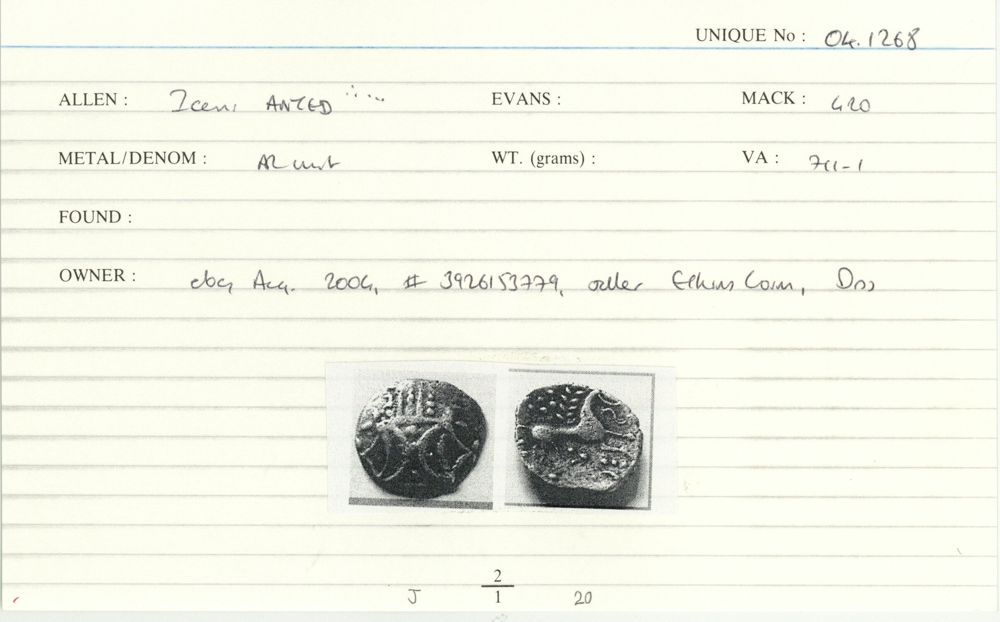 UNIQUE No : 04.1268
ALLEN : Iceni ANTED EVANS : MACK : 420
METAL/DENOM : AR unit WT. (grams) : VA : 711-1
FOUND :
OWNER : ebay Aug. 2004, # 3926153779, seller Elkins Coin,
2
J 1 20